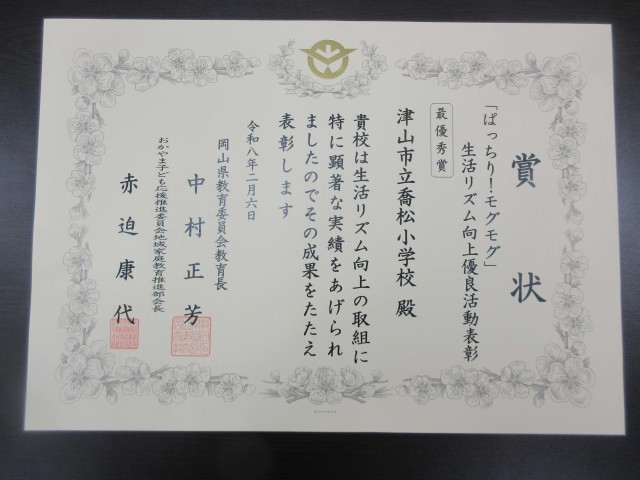 賞状
「ぱっちり！モグモグ」
生活リズム向上優良活動表彰
最優秀賞
津山市立喬松小学校 殿
貴校は生活リズム向上の取組に
特に顕著な実績をあげられ
ましたのでその成果をたたえ
表彰します
令和八年二月六日
岡山県教育委員会教育長
中村正芳
おかやま子ども応援推進委員会地域家庭教育推進部会長
赤迫康代